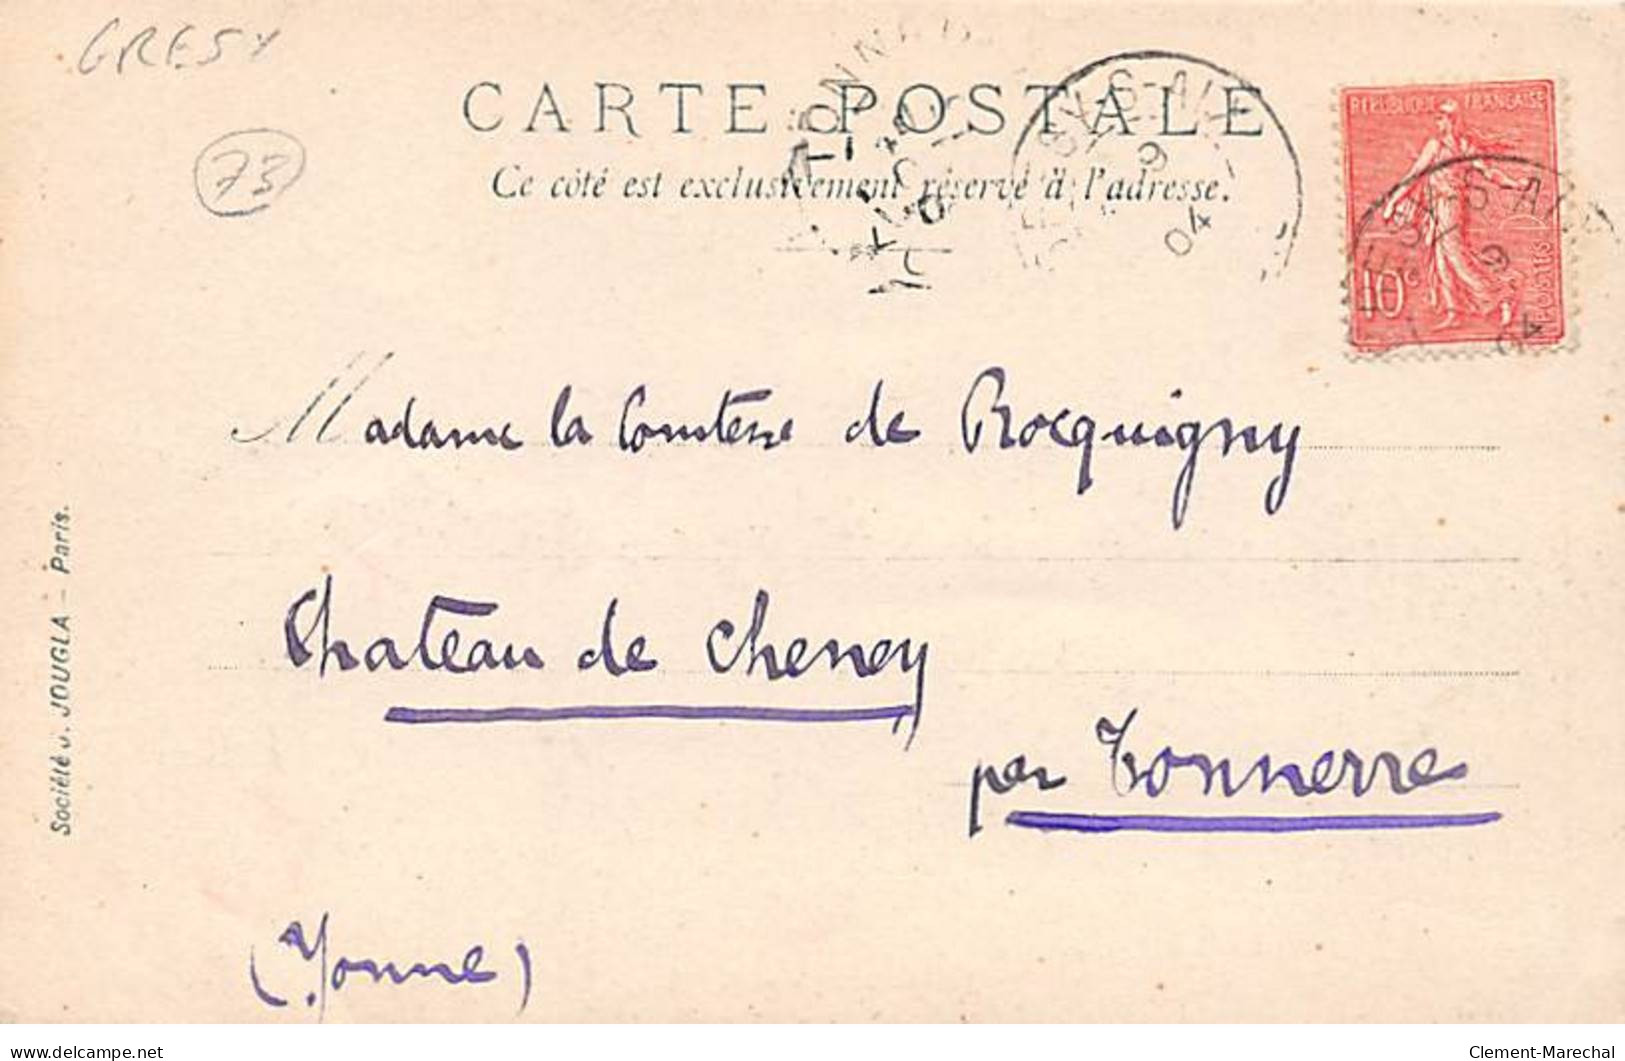 GRESY
73
CARTE POSTALE
Ce côté est exclusivement réservé à l'adresse.
REPUBLIQUE FRANÇAISE
10c
POSTES
SY-S-AIX
9
04
ESY-S-AIX
9
04
Madame la Comtesse de Rocquigny
Chateau de Cheney
par Tonnerre
(Yonne)
Société J. JOUGLA — Paris.
www.delcampe.net
Clement-Marechal